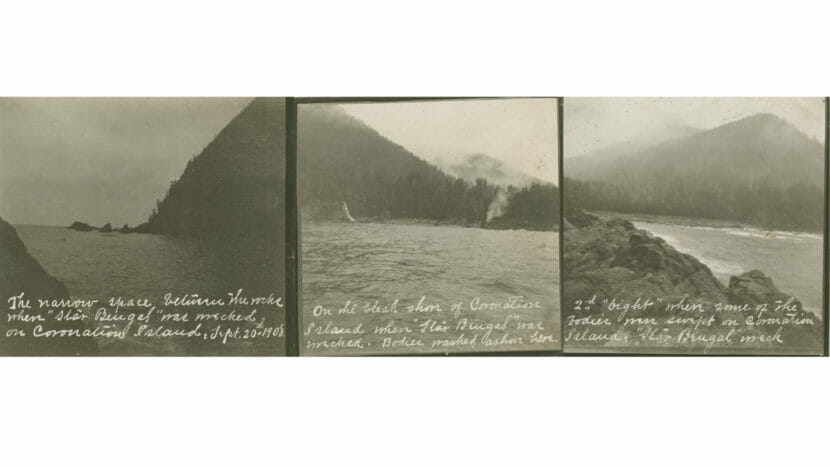 The narrow space between the rocks
where "Star Bengal" was wrecked
on Coronation Island, Sept. 20th 1908
On the bleak shore of Coronation
Island where "Star Bengal" was
wrecked. Bodies washed ashore here.
2nd "bight" where some of the
bodies were swept on Coronation
Island. "Star Bengal" wreck